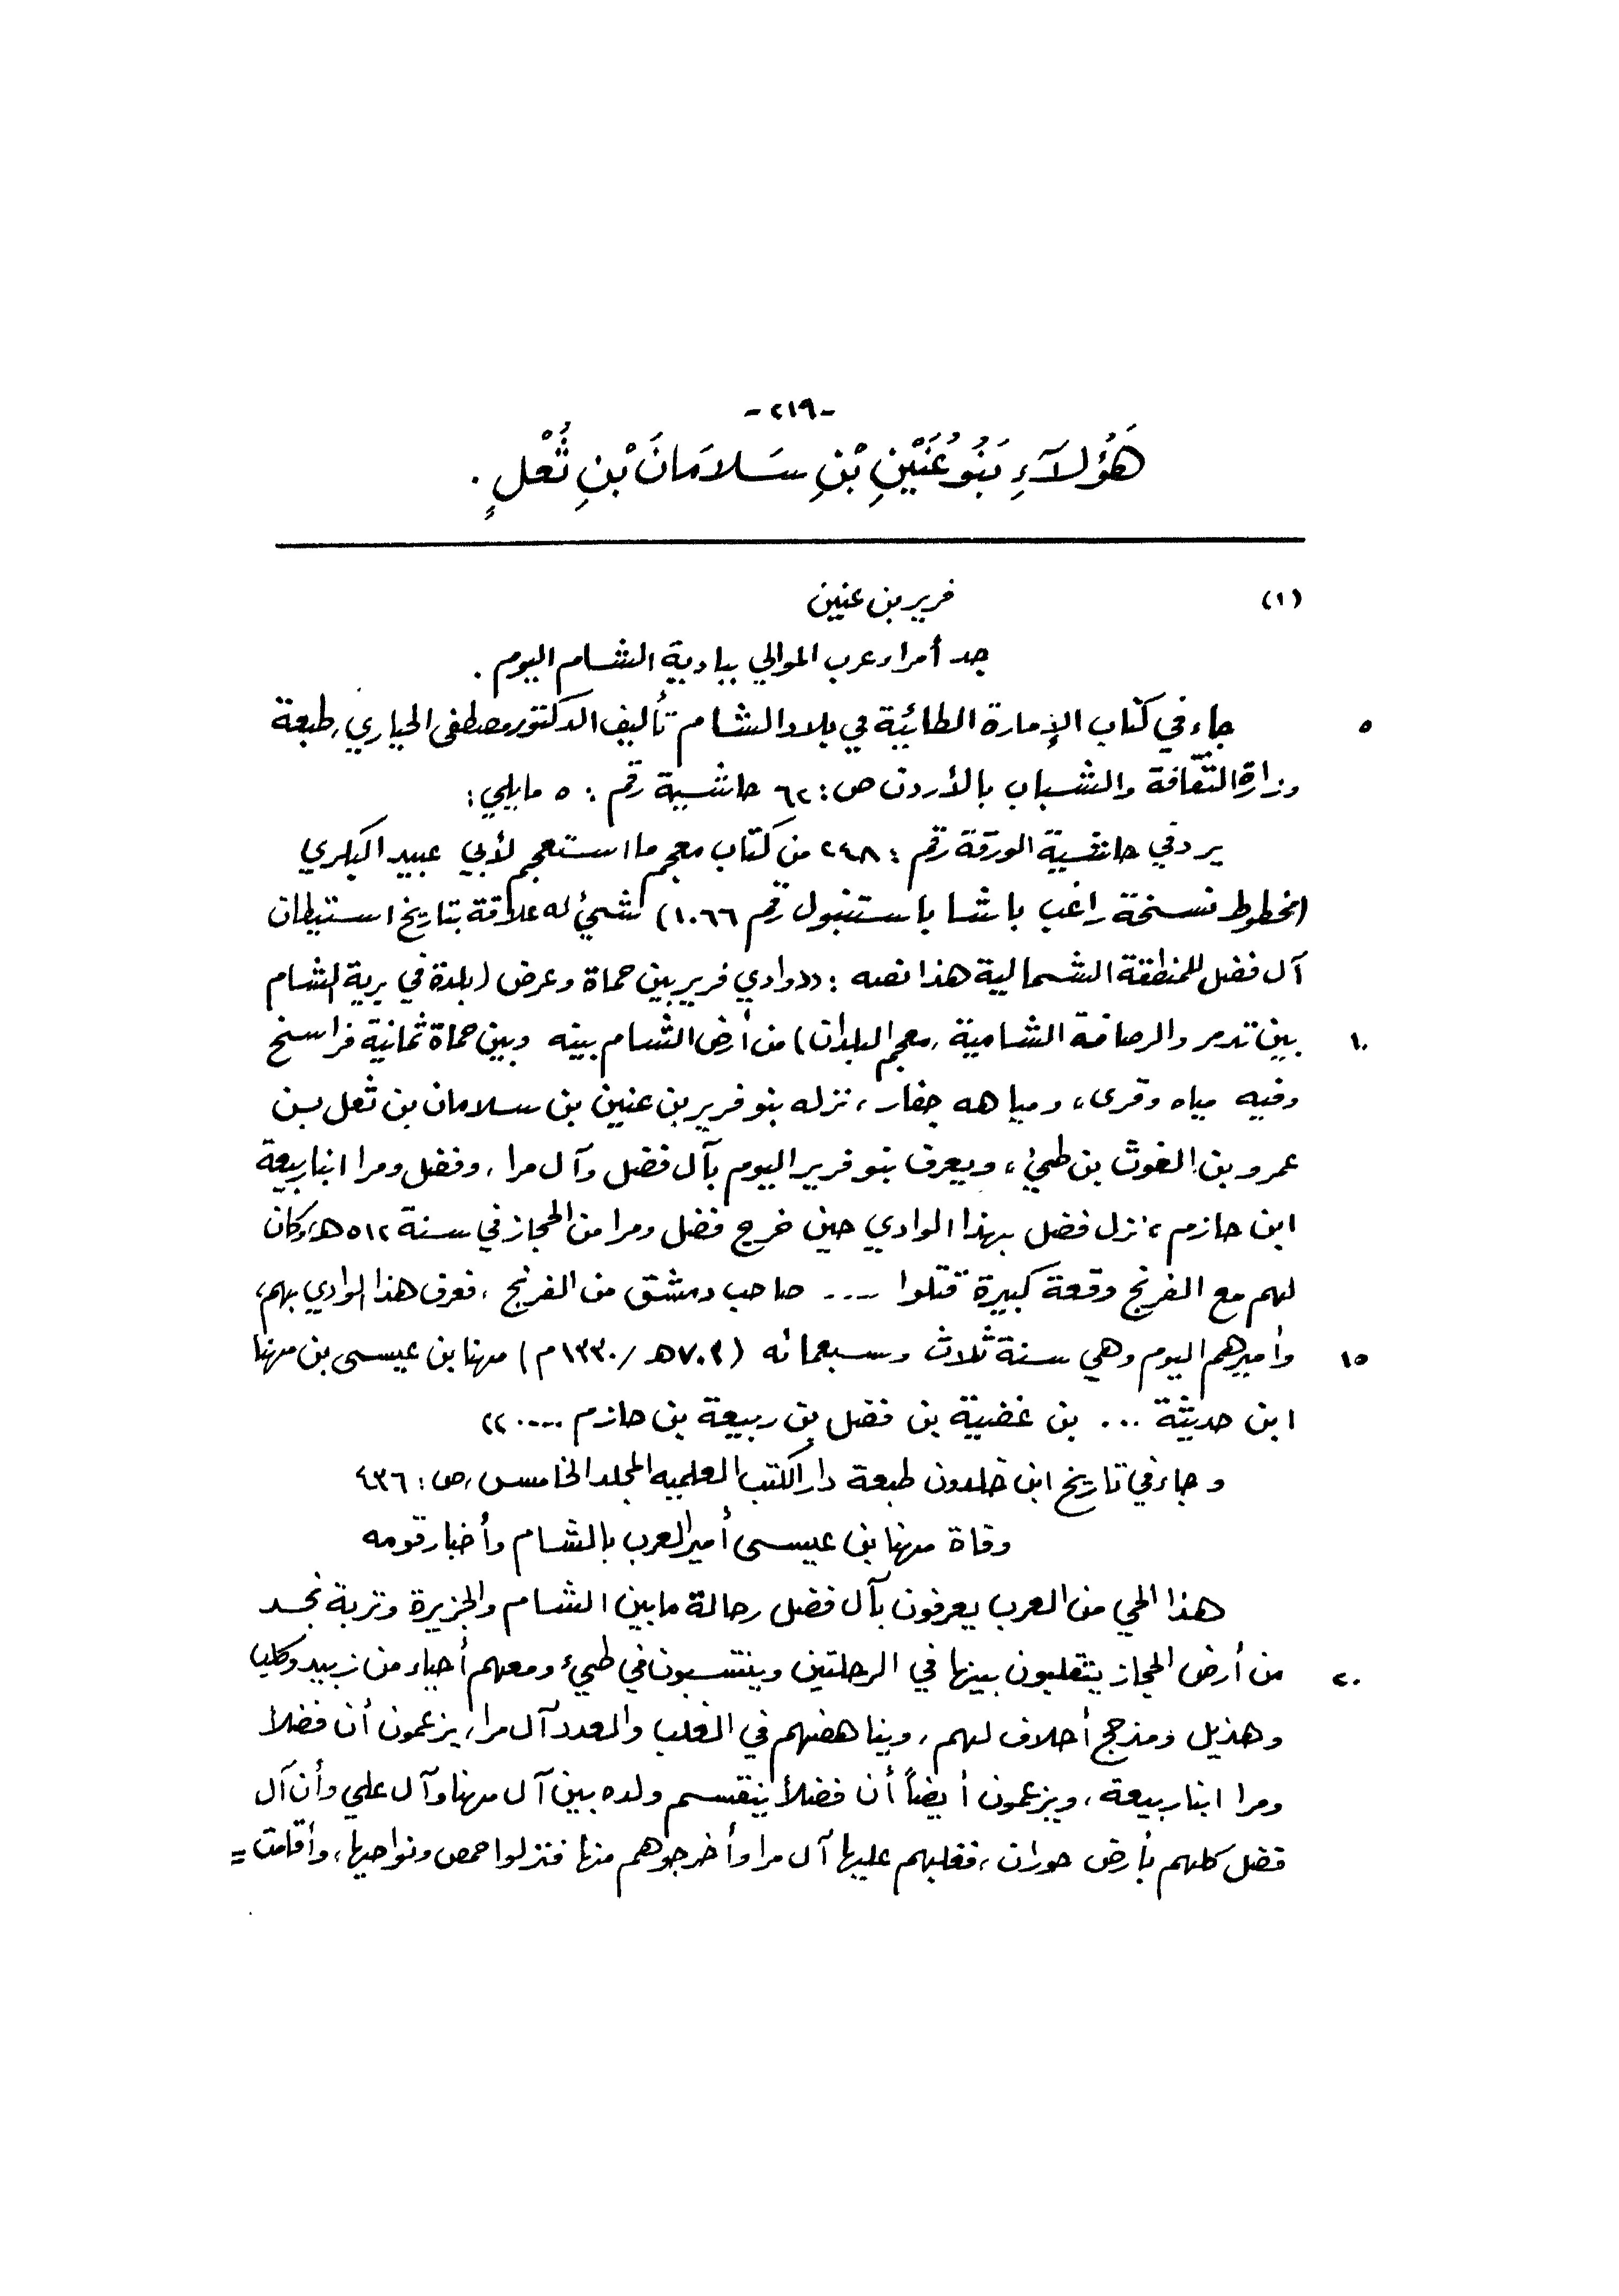 -٢١٩-
هَؤُلَآءِ بَنُو عُنَيْنِ بْنِ سَلاَمَانَ بْنِ ثُعْلٍ .
(١) فرير بن عنين
جد أمراء عرب الموالي ببادية الشام اليوم .
٥ جاء في كتاب الإمارة الطائيّة في بلاد الشام تأليف الدكتور مصطفى الحياري، طبعة
وزارة الثّقافة والشباب بالأردن ص: ٦٢ حاشية رقم : ٥ مايلي:
يرد في حاشية الورقة رقم : ٢٤٨ من كتاب معجم ما استعجم لأبي عبيد البكري
(مخطوط نسخة راغب باشا باستنبول رقم ١٠٦٦) شيئ له علاقة بتاريخ استيطان
آل فضل للمنطقة الشمالية هذا نصه : ((وادي فرير بين حماة وعرض (بلدة في برية الشام
١٠ بين تدمر والرصافة الشامية، معجم البلدان) من أرض الشام بينه وبين حماة ثمانية فراسخ
وفيه مياه وقرى، ومياهه جفار، نزله بنو فرير بن عنين بن سلامان بن ثعل بن
عمرو بن الغوث بن طيئ، ويعرف بنو فرير اليوم بآل فضل وآل مرا، وفضل ومرا ابنا ربيعة
ابن حازم، نزل فضل بهذا الوادي حين خرج فضل ومرا من الحجاز في سنة ٥١٢هـ، وكان
لهم مع الفرنج وقعة كبيرة قتلوا .... صاحب دمشق من الفرنج، فعرف هذا الوادي بهم،
١٥ وأميرهم اليوم وهي سنة ثلاث وسبعمائه (٧٠٣هـ / ١٣٣٠م) مهنا بن عيسى بن مهنا
ابن حديثة ... بن غضية بن فضل بن ربيعة بن حازم ....))
وجاء في تاريخ ابن خلدون طبعة دار الكتب العلميه المجلد الخامس، ص: ٤٣٦
وفاة مهنا بن عيسى أمير العرب بالشام وأخبار قومه
هذا الحي من العرب يعرفون بآل فضل رحالة مابين الشام والجزيرة وتربة نجد
٢٠ من أرض الحجاز يتقلبون بينها في الرحلتين وينتسبون في طيء ومعهم أحياء من زبيد وكلب
وهذيل ومذحج أحلاف لهم، ويناهضهم في الغلب والعدد آل مرا، يزعمون أن فضلاً
ومرا ابنا ربيعة، ويزعمون أيضاً أن فضلاً ينقسم ولده بين آل مهنا وآل علي وأن آل
فضل كلهم بأرض حوران، فغلبهم عليها آل مرا وأخرجوهم منها فنزلوا حمص ونواحيها، وأقامت =